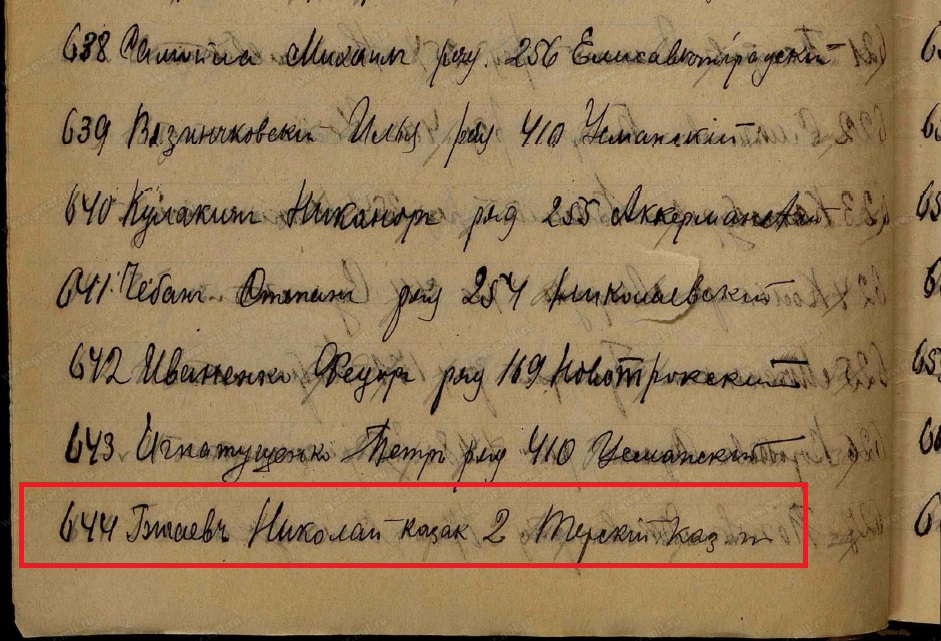 638 Михаил ряд. 256 Елисаветградскій
639 Илья ряд 410 Усманскій
640 Кулакин Никанор ряд 255 Аккерманскій
641 Чебан Степан ряд 254 Николаевский
642 Иваненко Федор ряд 169 Новотрокский
643 Игнатущенко Петр ряд 410 Усманский
644 Николай казак 2 Терский каз. п